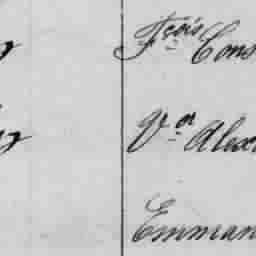 Fçois Cons
Vor Alex
Emman